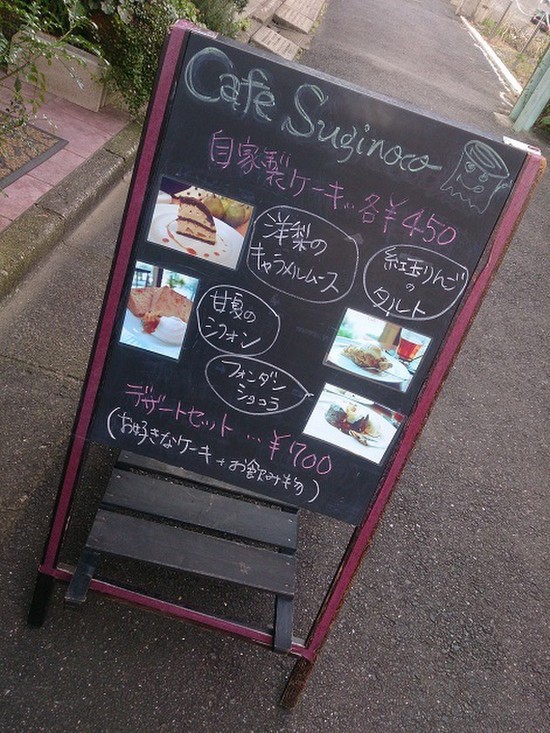 Café Suginoco
自家製ケーキ… 各¥450
洋梨の
キャラメルムース
紅玉りんご
の
タルト
甘夏の
シフォン
フォンダン
ショコラ
デザートセット …¥700
(お好きなケーキ + お飲み物)